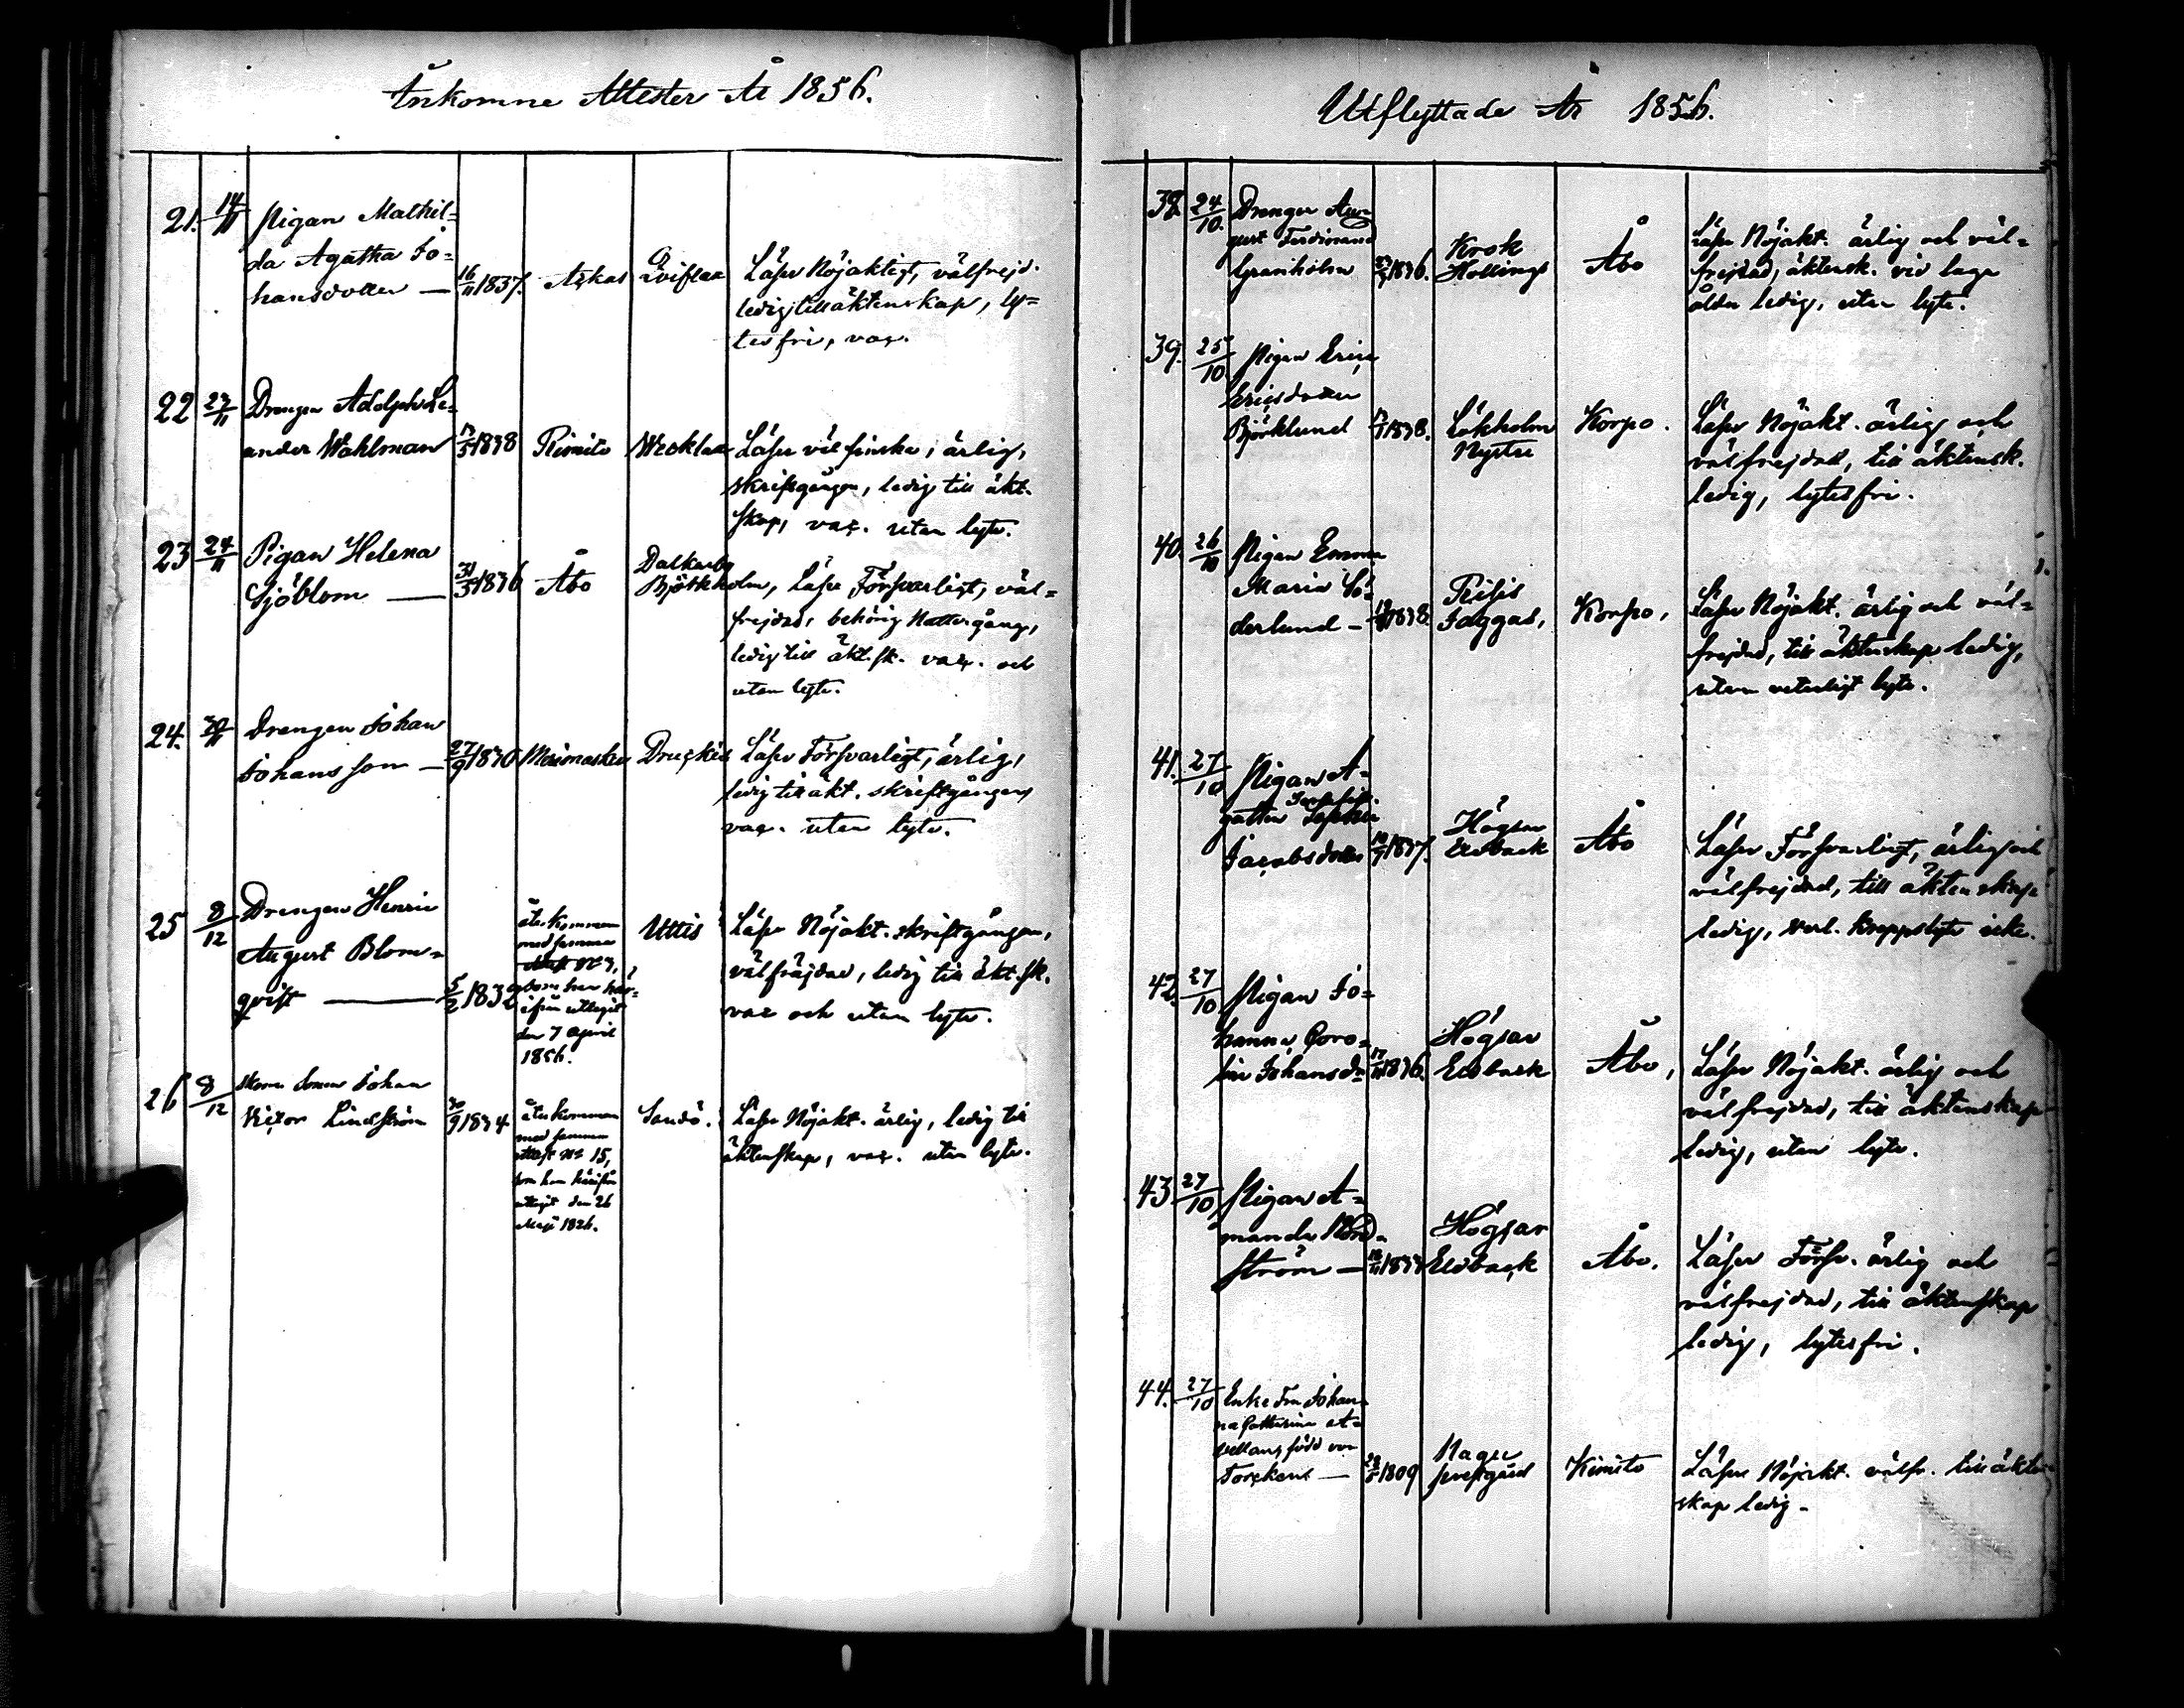 Ankomne Attester År 1856.
21. 14/11 Pigan Mathil=
da Agatha Jo=
hansdotter — 16/11 1837. Askas Qviflax Läser Nöjaktigt, välfrejd.
ledig till äktenskap, ly=
tesfri, vac.
22 23/11 Drengen Adolph Le=
ander Wahlman 1838 Rimito Läser väl finska, ärlig,
skriftgången, ledig till äkt.
skap, vac. utan lyte.
23 24/11 Pigan Helena
Sjöblom — 1836 Åbo Dalkarby
Björkholm, Läser Försvarligt, väl=
frejdad, behörig Nattvgång,
ledig till äkt.sk. vac. och
utan lyte.
24. Drengen Johan
Johansson — 27/9 1830 Läser Försvarligt, ärlig,
ledig till äkt. skriftgången
vac. utan lyte.
25 8/12 Drengen Henric
August Blom=
qvist — 5/2 1832 återkommen
med samma
Attest No 7,
som han här=
ifrån uttagit
den 7 April
1856.
Uttis Läser Nöjakt. skriftgången,
välfräjdad, ledig till äkt.sk.
vac och utan lyte.
26 8/12 Johan
Victor Lindström 30/9 1834 återkommen
med samma
attest No 15,
som han härifrån
uttagit den 26
Maji 1826.
Sandö. Läser Nöjakt. ärlig, ledig till
äktenskap, vac. utan lyte.
Utflyttade År 1856.
38. 24/10. Drengen Au=
gust Ferdinand
Granholm 1836. Krok
Hollings Åbo Läser Nöjakt. ärlig och väl=
frejdad, äktensk. vid laga
ålder ledig, utan lyte.
39. 25/10 Pigan Erica
Ericsdotter
Björklund 1838. Lökholm
Nystu Korpo. Läser Nöjakt. ärlig och
välfrejdad, till äktensk.
ledig, lytesfri.
40. 26/10 Pigan Emma
Maria Sö=
derlund — 1838. Risis
Jaggas, Korpo, Läser Nöjakt. ärlig och väl=
frejdad, till äktenskap ledig,
utan veterligt lyte.
41. 27/10 Pigan A=
gatha
Jacobsdotter 1837. Högsar
Eldback Åbo Läser Försvarligt, ärlig och
välfrejdad, till äktenskap
ledig, kroppslyte icke.
42. 27/10 Pigan Jo=
hanna Caro=
lin Johansdr 1836. Högsar
Eldback Åbo, Läser Nöjakt. ärlig och
välfrejdad, till äktenskap
ledig, utan lyte.
43. 27/10 Pigan A=
manda Nord=
ström — Högsar
Eldback Åbo. Läser Försv. ärlig och
välfrejdad, till äktenskap
ledig, lytesfri.
44. 27/10 Enke Fru Johan=
na Catharina
född von
Torcken — 1809 Nagu
prestgård Kimito Läser Nöjakt. välfr. till äkten
skap ledig.